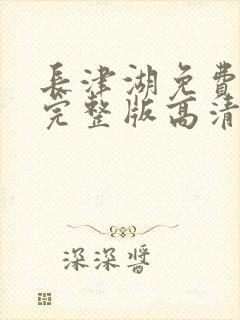 長津湖免費
完整版高清
深深醬